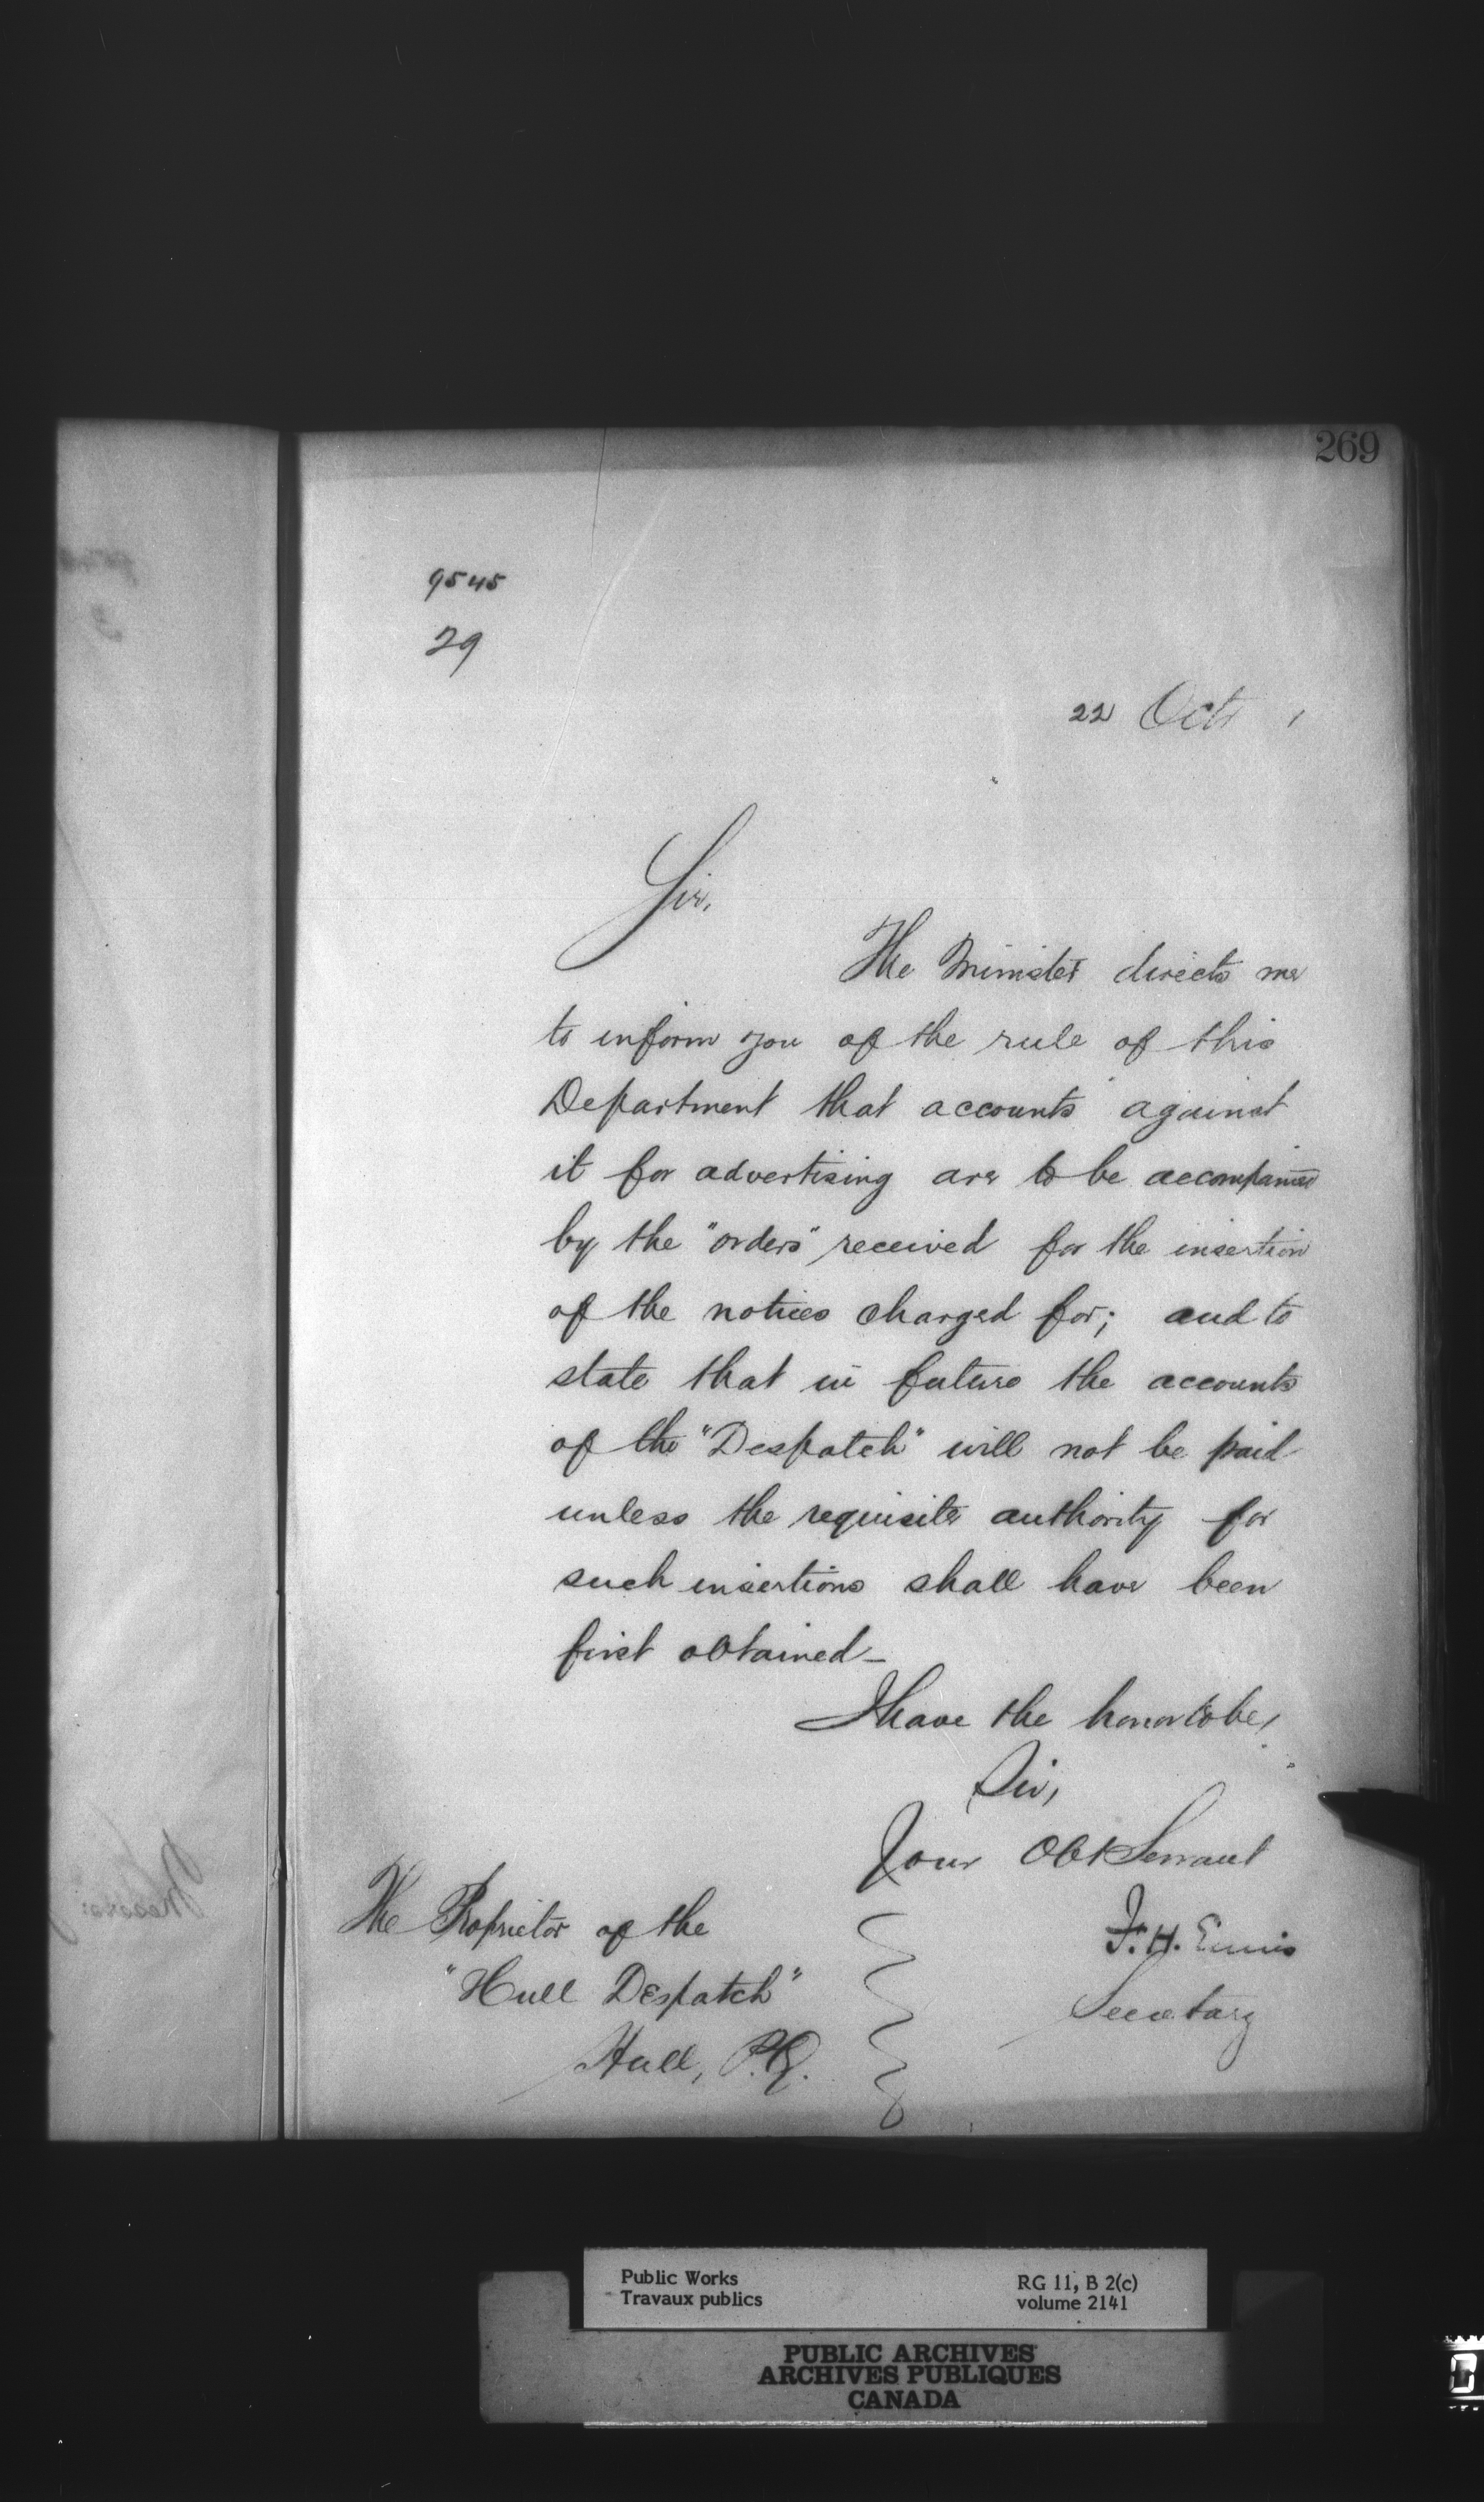 269
9545
29
22 Oct 1
Sir,
The Minister directs me
to inform you of the rule of this
Department that accounts against
it for advertising are to be accompanied
by the "orders" received for the insertion
of the notices charged for; and to
state that in future the accounts
of the "Despatch" will not be paid
unless the requisite authority for
such insertions shall have been
first obtained_
I have the honor to be,
Sir,
Your Obt Servant
F. H. Ennis
Secretary
The Proprietor of the
"Hull Despatch"
Hull, P.Q.
Public Works
Travaux publics
RG 11, B 2(c)
volume 2141
PUBLIC ARCHIVES
ARCHIVES PUBLIQUES
CANADA